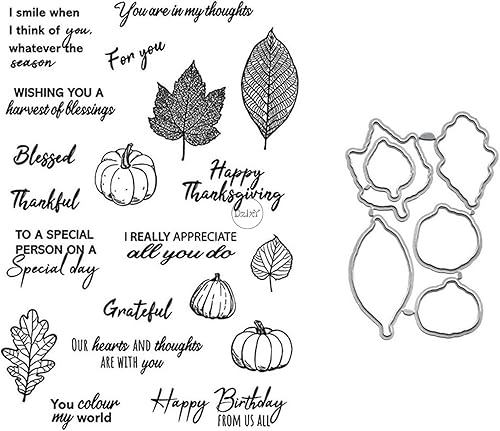 I smile when
I think of you,
whatever the
season
You are in my thoughts
For you
WISHING YOU A
harvest of blessings
Blessed
Thankful
Happy
Thanksgiving
DzIxY
TO A SPECIAL
PERSON ON A
Special day
I REALLY APPRECIATE
all you do
Grateful
OUR hearts AND thoughts
ARE WITH you
You colour
my world
Happy Birthday
FROM US ALL